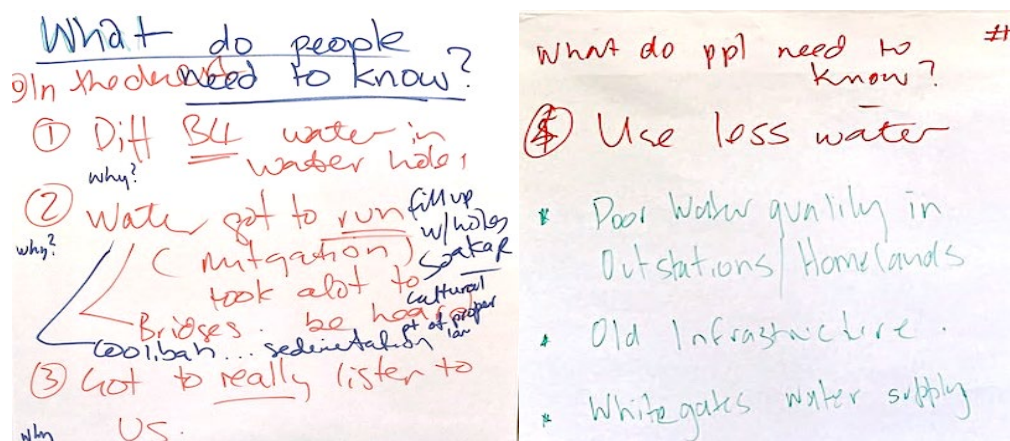 What do people
need to know?
In the desert
① Diff B4 water in
water holes
why?
② Water got to run
fill up
w/holes
soakage
why?
(mitigation)
took alot to
be heard
cultural
pt of proper
Bridges.
Coolibah... sedimentation
③ Got to really listen to
us.
why
What do ppl need to
know?
Use less water
* Poor Water quality in
Outstations/Homelands
* Old Infrastructure.
* Whitegates water supply